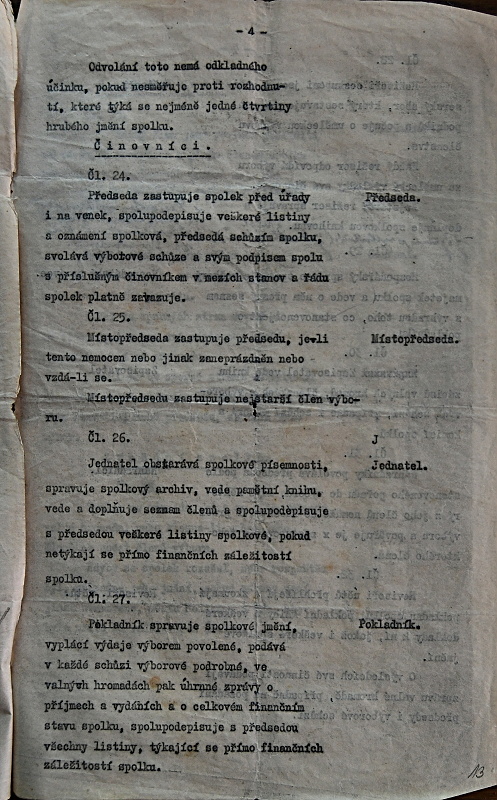 - 4 -
Odvolání toto nemá odkladného
účinku, pokud nesměřuje proti rozhodnu-
tí, které týká se nejméně jedné čtvrtiny
hrubého jmění spolku.
Činovníci.
Čl. 24.
Předseda zastupuje spolek před úřady Předseda.
i na venek, spolupodepisuje veškeré listiny
a oznámení spolková, předsedá schůzím spolku,
svolává výborové schůze a svým podpisem spolu
s příslušným činovníkem v mezích stanov a řádu
spolek platně zavazuje.
Čl. 25.
Místopředseda zastupuje předsedu, je-li Místopředseda.
tento nemocen nebo jinak zaneprázdněn nebo
vzdá-li se.
Místopředsedu zastupuje nejstarší člen výbo-
ru.
Čl. 26. J
Jednatel obstarává spolkové písemnosti, Jednatel.
spravuje spolkový archiv, vede pamětní knihu,
vede a doplňuje seznam členů a spolupodepisuje
s předsedou veškeré listiny spolkové, pokud
netýkají se přímo finančních záležitostí
spolku.
Čl. 27.
Pokladník spravuje spolkové jmění, Pokladník.
vyplácí výdaje výborem povolené, podává
v každé schůzi výborové podrobné, ve
valných hromadách pak úhrnné zprávy o
příjmech a vydáních a o celkovém finančním
stavu spolku, spolupodepisuje s předsedou
všechny listiny, týkající se přímo finančních
záležitostí spolku.
13